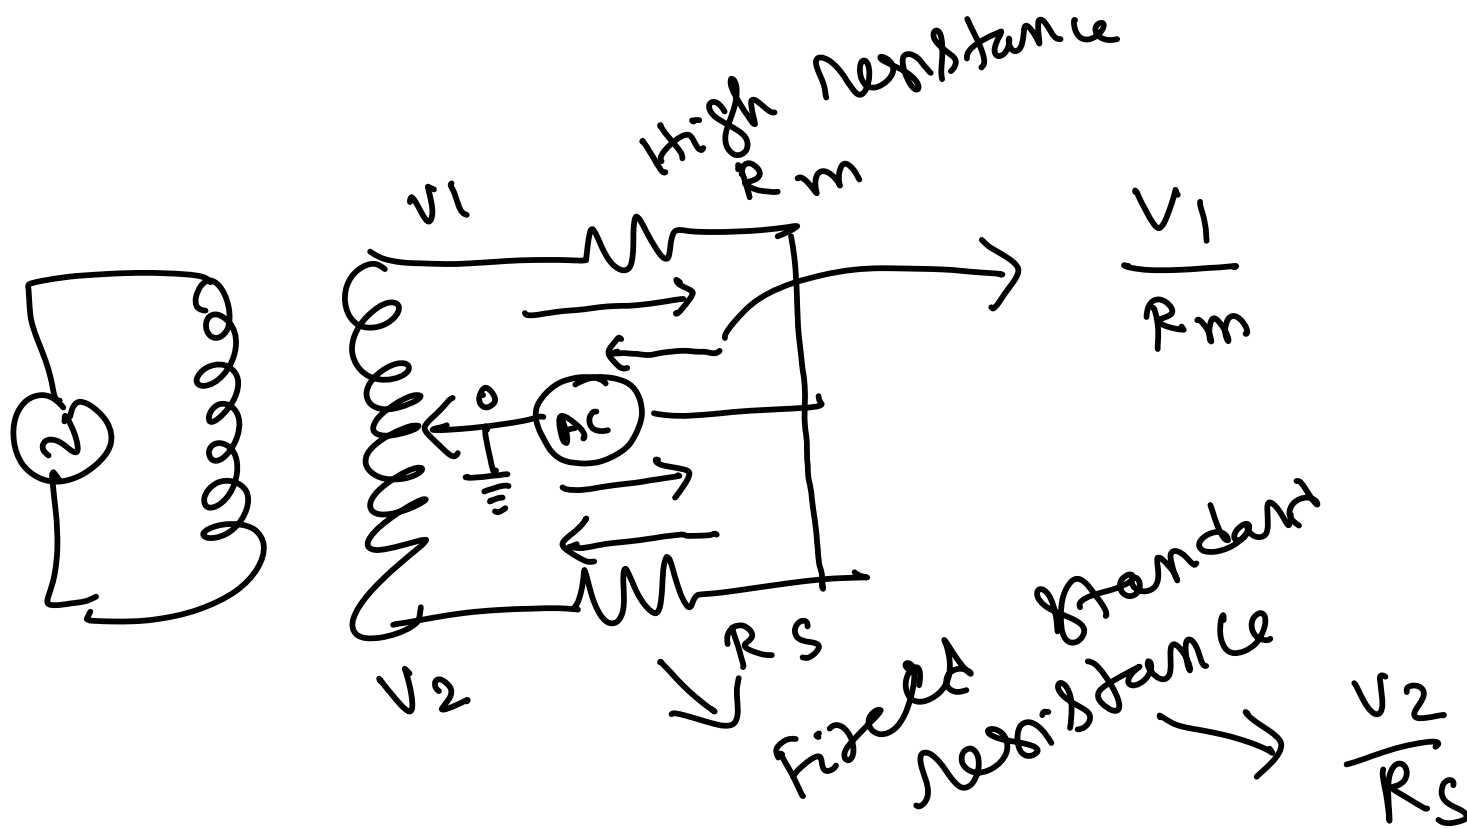 High resistance
Rm
V1
V1
Rm
0
AC
V2
RS
Fixed standard
resistance
V2
RS